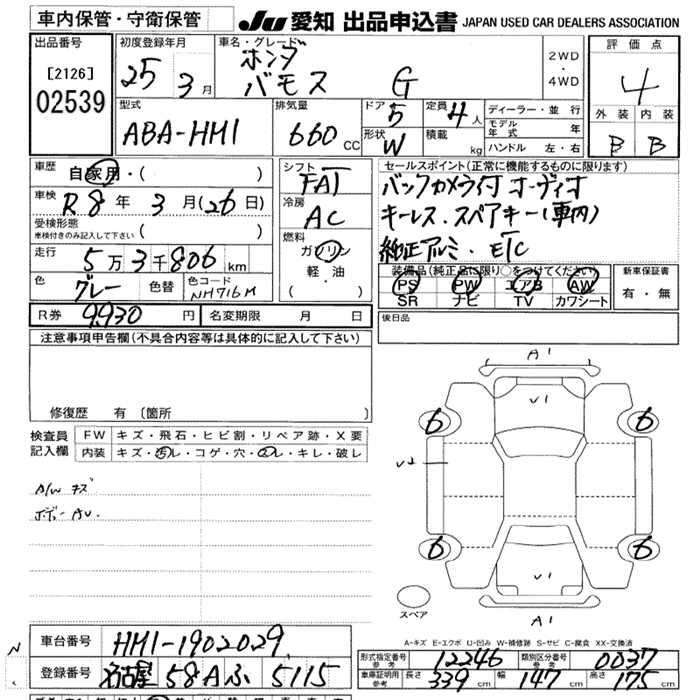 車内保管・守衛保管
JU 愛知 出品申込書 JAPAN USED CAR DEALERS ASSOCIATION
出品番号
[2126]
02539
初度登録年月
25 3月
車名・グレード
ホンダ
バモス G
2WD
・
4WD
評価点
4
外装 内装
B B
型式
ABA-HM1
排気量
660 CC
ドア 5
形状 W
定員 4人
積載 kg
ディーラー・並行
モデル年式 年
ハンドル 左・右
車歴 自家用・( )
車検 R8年 3月(26日)
受検形態
車検付きのみ記入して下さい ( )
走行 5万3千806km
色 グレー 色替 色コード NH716M
シフト FAT
冷房 AC
燃料
ガソリン
軽・油
( )
セールスポイント(正常に機能するものに限ります)
バックカメラ付 オーディオ
キーレス、スペアキー(車内)
純正アルミ・ETC
装備品(純正品に限り○をつけてください)
PS PW エアB AW
SR ナビ TV カワシート
新車保証書
有・無
R券 9,930円 名変期限 月 日
後日品
注意事項申告欄(不具合内容等は具体的に記入して下さい)
修復歴 有 〔箇所 〕
検査員記入欄
FW キズ・飛石・ヒビ割・リペア跡・X要
内装 キズ・汚レ・コゲ・穴・スレ・キレ・破レ
A/W キズ
ボデーAU.
A1
V1
6 6
V2
6 6
V1
A1
スペア
A-キズ E-エクボ U-凹み W-補修跡 S-サビ C-腐食 XX-交換済
車台番号 HM1-1902029
登録番号 名古屋 58A ふ 5115
形式指定番号 参考 12246 類別区分番号 参考 0037
車庫証明用 参考 長さ 339cm 幅 147cm 高さ 175cm